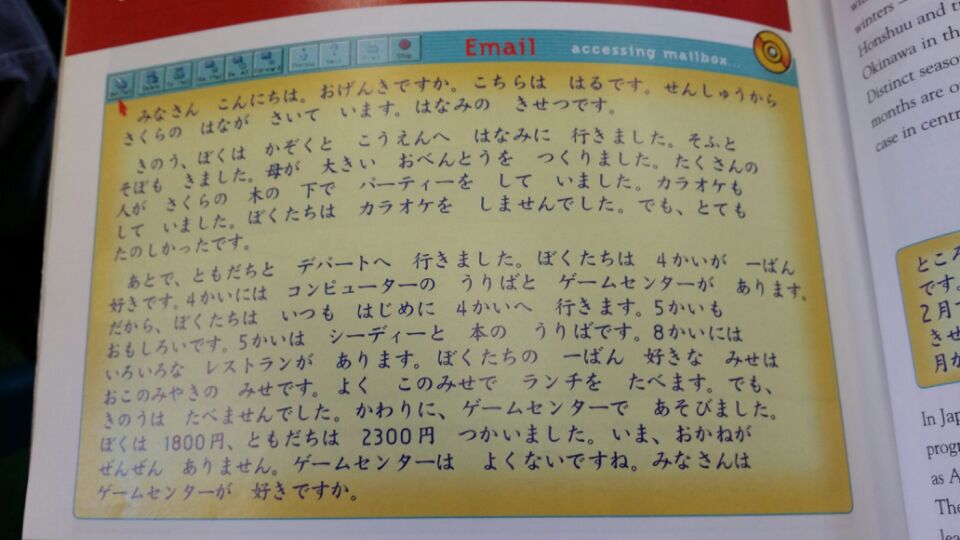 Email
accessing mailbox...
みなさん こんにちは。おげんきですか。こちらは はるです。せんしゅうから
さくらの はなが さいて います。はなみの きせつです。
きのう、ぼくは かぞくと こうえんへ はなみに 行きました。そふと
そぼも きました。母が 大きい おべんとうを つくりました。たくさんの
人が さくらの 木の 下で パーティーを して いました。カラオケも
して いました。ぼくたちは カラオケを しませんでした。でも、とても
たのしかったです。
あとで、ともだちと デパートへ 行きました。ぼくたちは 4かいが 一ばん
好きです。4かいには コンピューターの うりばと ゲームセンターが あります。
だから、ぼくたちは いつも はじめに 4かいへ 行きます。5かいも
おもしろいです。5かいは シーディーと 本の うりばです。8かいには
いろいろな レストランが あります。ぼくたちの 一ばん 好きな みせは
おこのみやきの みせです。よく このみせで ランチを たべます。でも、
きのうは たべませんでした。かわりに、ゲームセンターで あそびました。
ぼくは 1800円、ともだちは 2300円 つかいました。いま、おかねが
ぜんぜん ありません。ゲームセンターは よくないですね。みなさんは
ゲームセンターが 好きですか。
winters
Honshuu and
Okinawa in th
Distinct seaso
months are o
case in centr
ところ
です。
2月
きせ
月が
In Jap
prog
as A
The